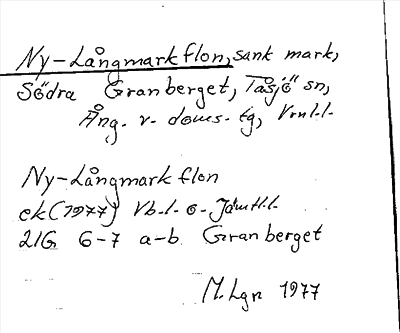 Ny-Långmarkflon, sank mark,
Södra Granberget, Tåsjö sn,
Ång. v. doms. tg, Vrnl.l.
Ny-Långmarkflon
ek (1977) Vb.l. o. Jämtl.l.
21G 6-7 a-b Granberget
M. Lgr 1977